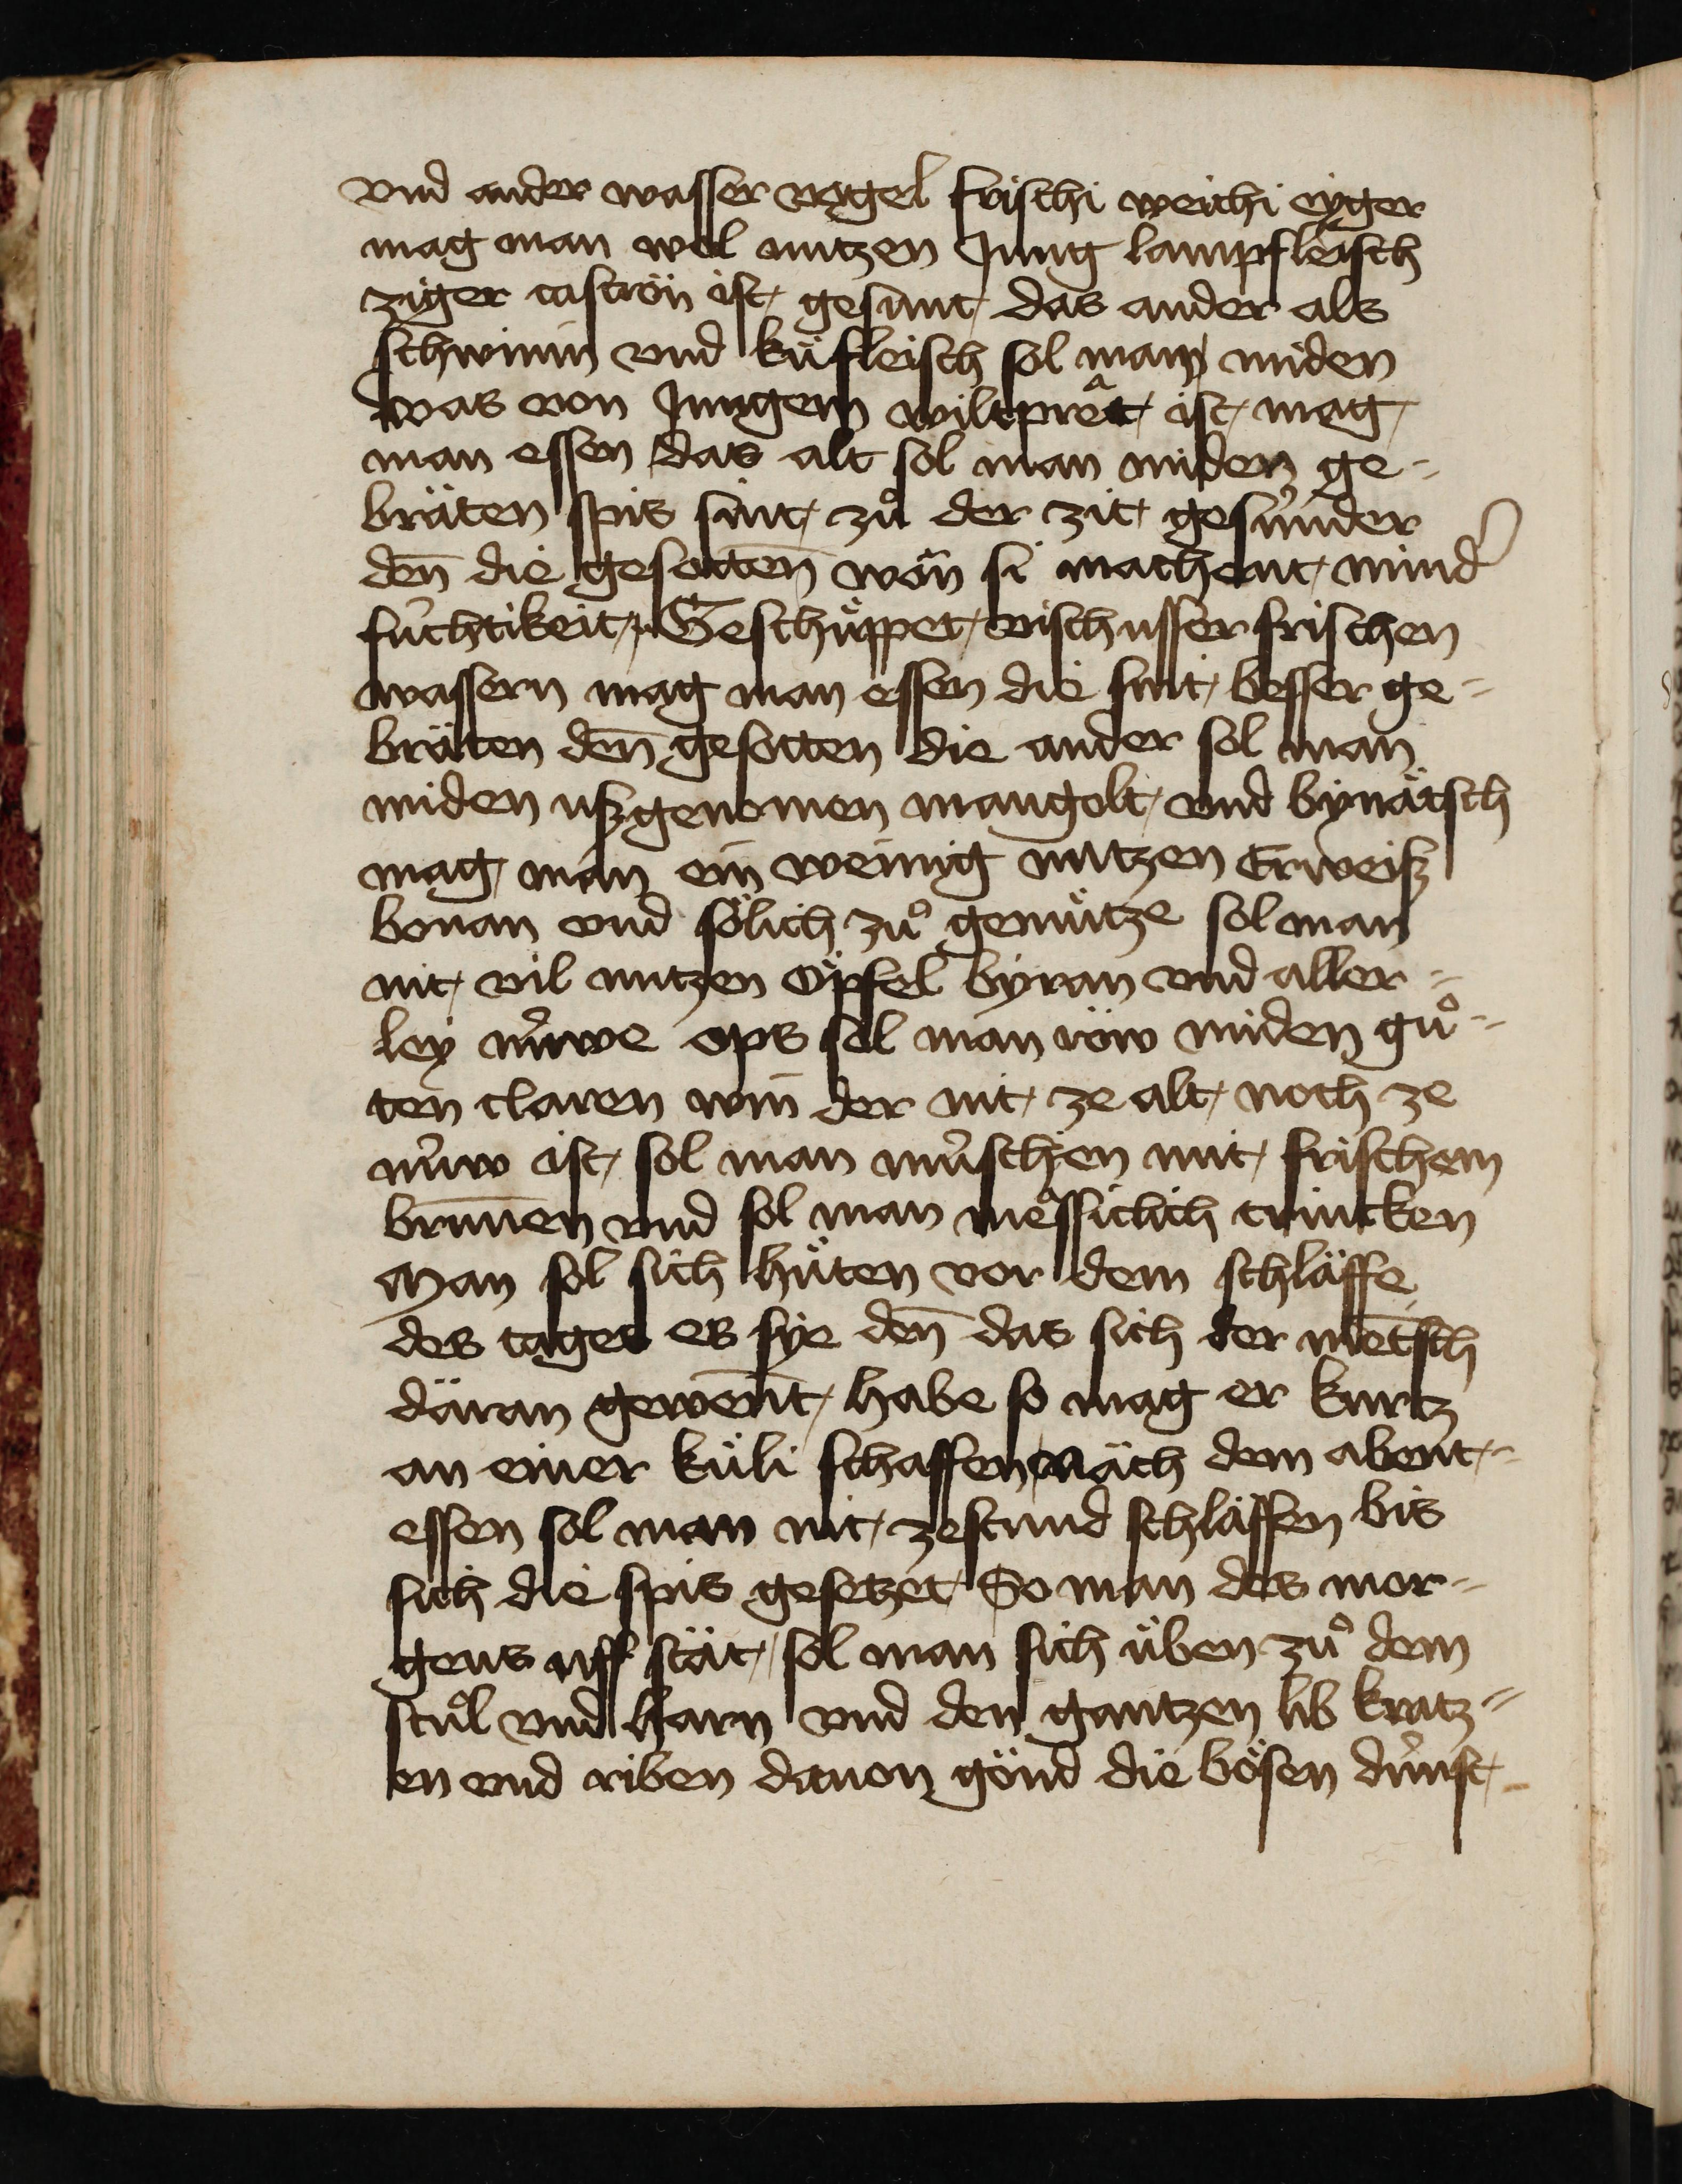 vnd ander wasser vogel frischi weichi eyger
mag man wol nutzen Jung lampfleisch
ziger caströn ist gesunt das ander als
schwinin vnd küfleisch sol man miden
was von Jungem wiltprêt ist mag
man essen das alt sol man miden ge-
bräten spis sint zů der zit gesünder
den̄ die gesotten̄ wön si machent mind͛
füchtikeit Geschüppet visch usser frischen
wassern mag man essen die sint besser ge-
bräten den̄ gesotten die ander sol man
miden uszgenomen mangolt vnd bynätsch
mag man ein weinig nutzen Erweisz
bonan vnd sölich zů gemütze sol man
nit vil nutzen Öpfel byran vnd aller-
ley nüwe ops sol man röw miden gů-
ten claren win der nit ze alt noch ze
nüw ist sol man müschen mit frischem
brun̄en vnd sol man mêssiclich trincken
Man sol sich hüten vor dem schläffe
des tages es sye den̄ das sich der mētsch
däran gewen̄t habe so mag er kurtz
an einer küli schaffen Näch dem abent-
essen sol man nit zestund schläffen bis
sich die spis gesetzet So man des mor-
gens uff stät sol man sich üben zů dem
stůl vnd harn vnd den gantzen lib kratz-
en vnd riben dauon gönd die bösen dünst-